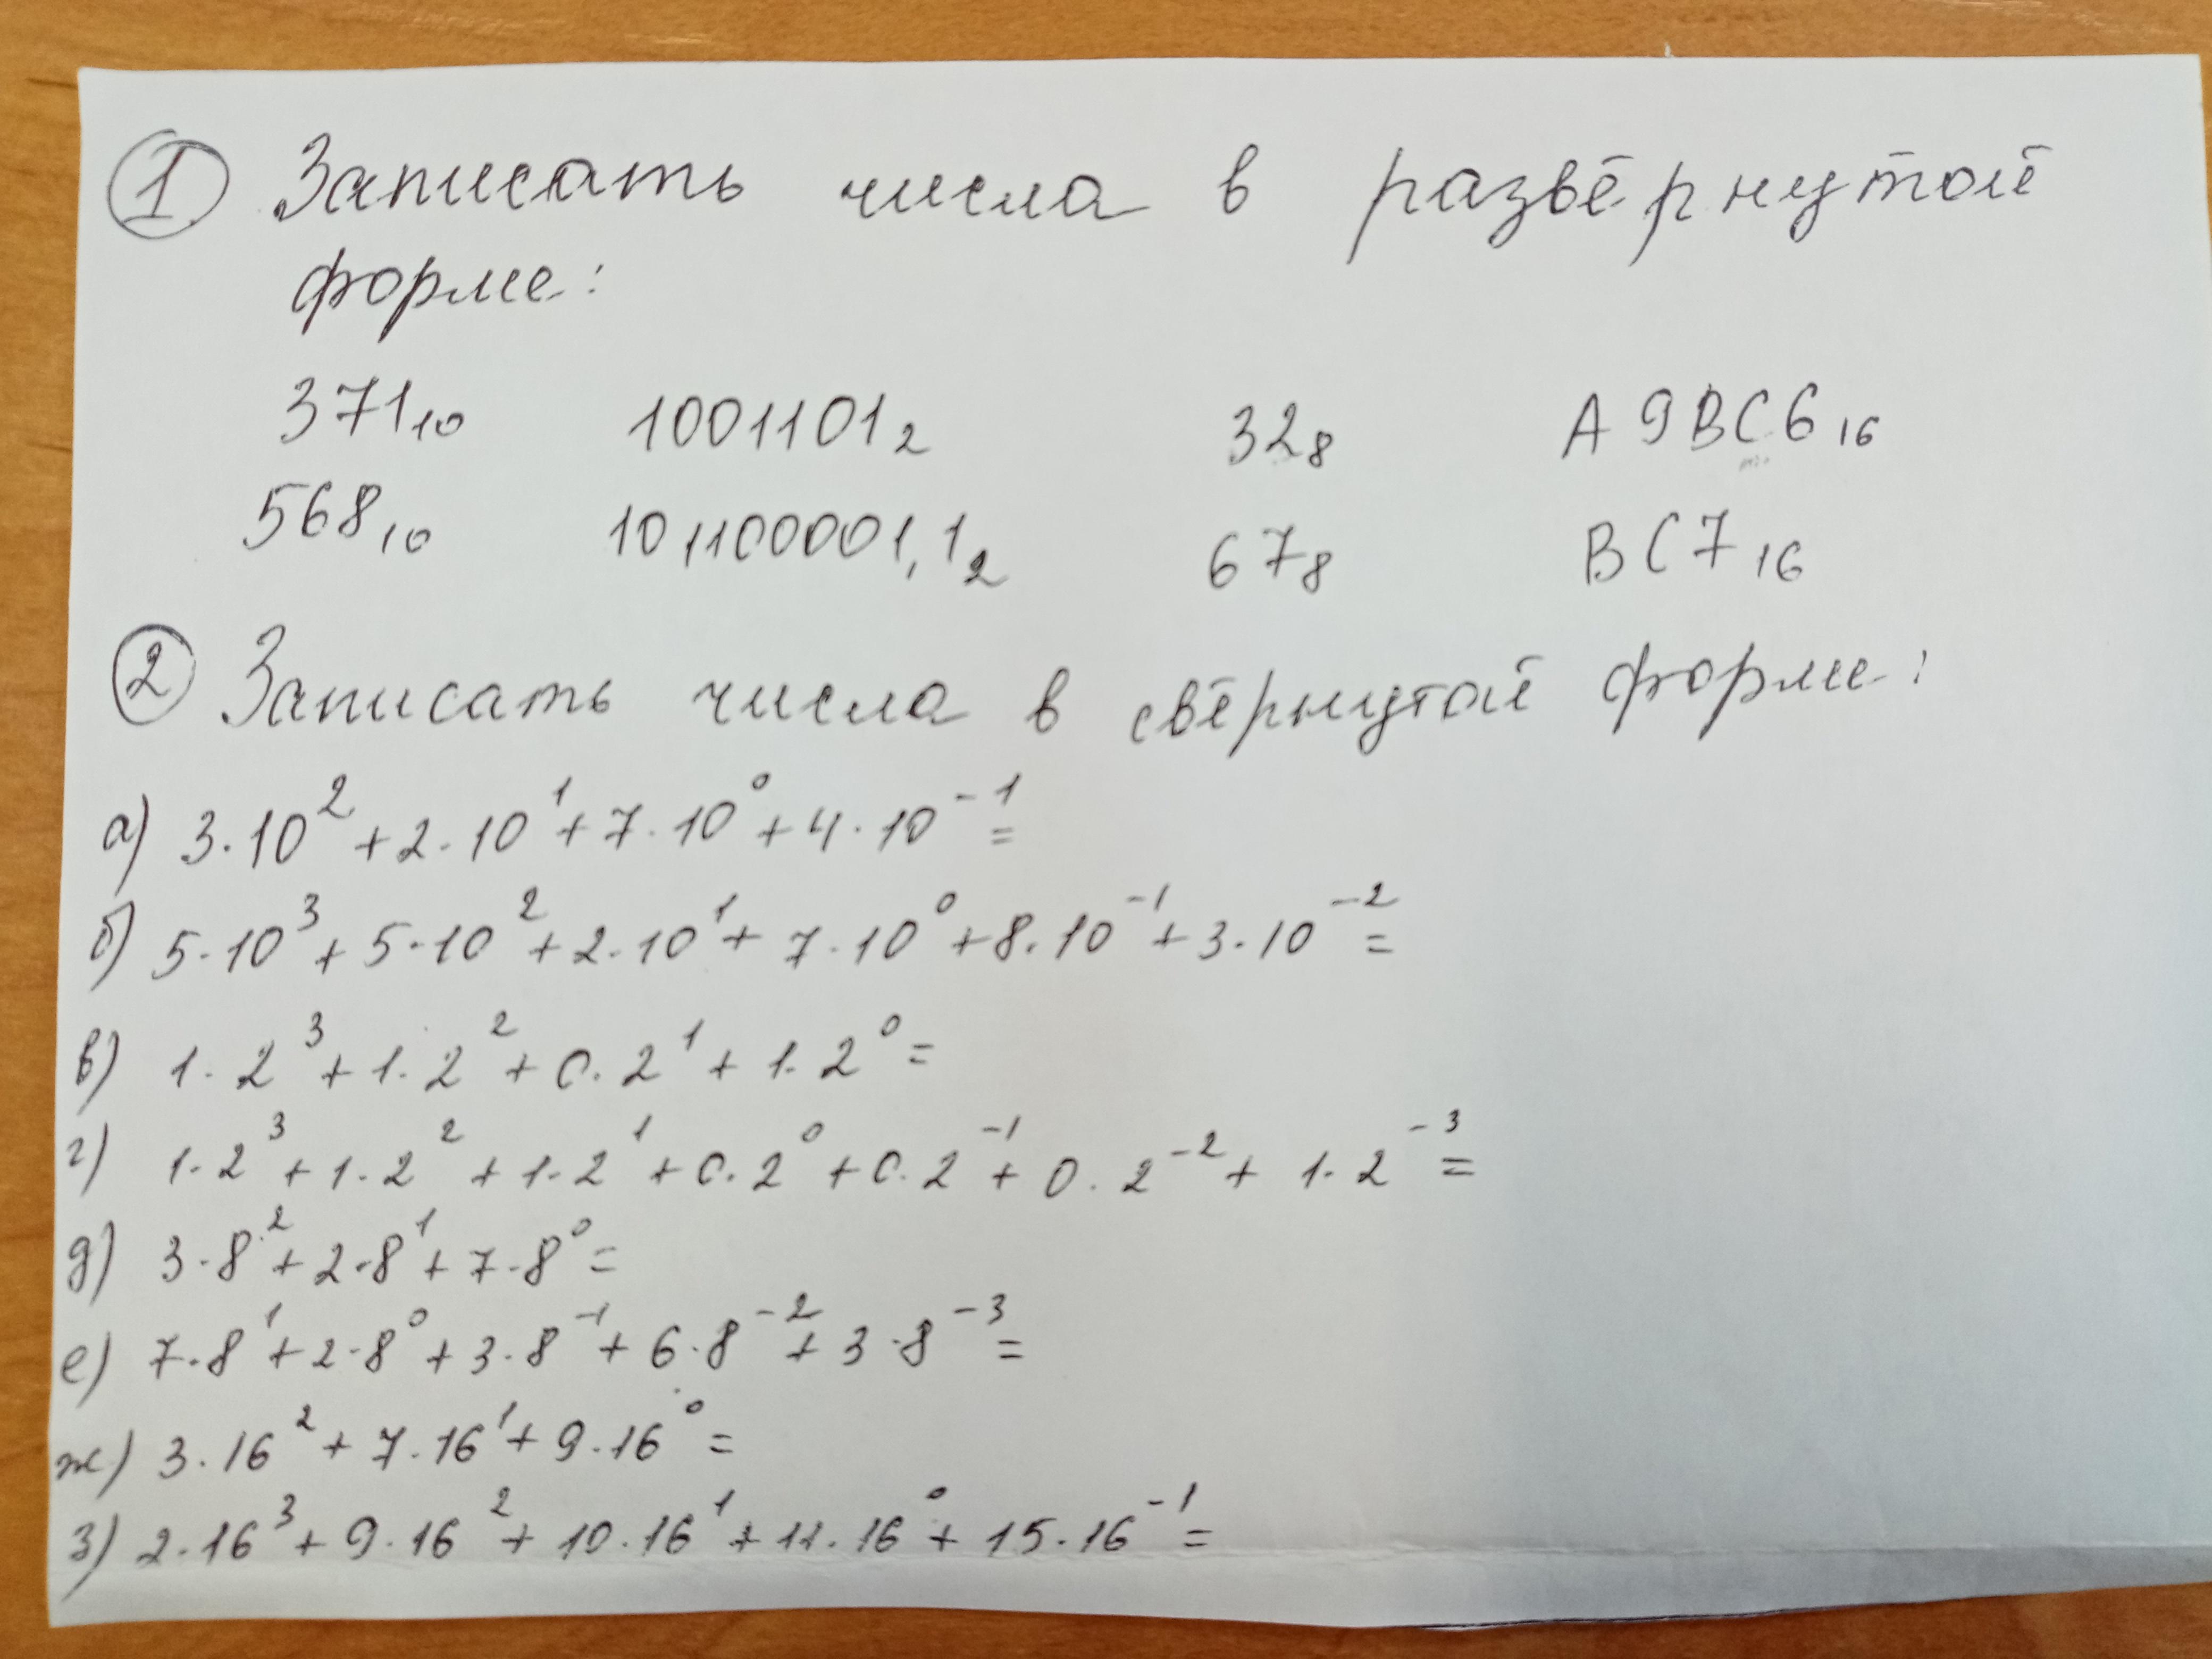 1 Записать числа в развёрнутой
форме:
371₁₀ 1001101₂ 32₈ A9BC6₁₆
568₁₀ 101100001,1₂ 67₈ BC7₁₆
2 Записать числа в свёрнутой форме:
а) 3·10² + 2·10¹ + 7·10⁰ + 4·10⁻¹ =
б) 5·10³ + 5·10² + 2·10¹ + 7·10⁰ + 8·10⁻¹ + 3·10⁻² =
в) 1·2³ + 1·2² + 0·2¹ + 1·2⁰ =
г) 1·2³ + 1·2² + 1·2¹ + 0·2⁰ + 0·2⁻¹ + 0·2⁻² + 1·2⁻³ =
д) 3·8² + 2·8¹ + 7·8⁰ =
е) 7·8¹ + 2·8⁰ + 3·8⁻¹ + 6·8⁻² + 3·8⁻³ =
ж) 3·16² + 7·16¹ + 9·16⁰ =
з) 2·16³ + 9·16² + 10·16¹ + 11·16⁰ + 15·16⁻¹ =